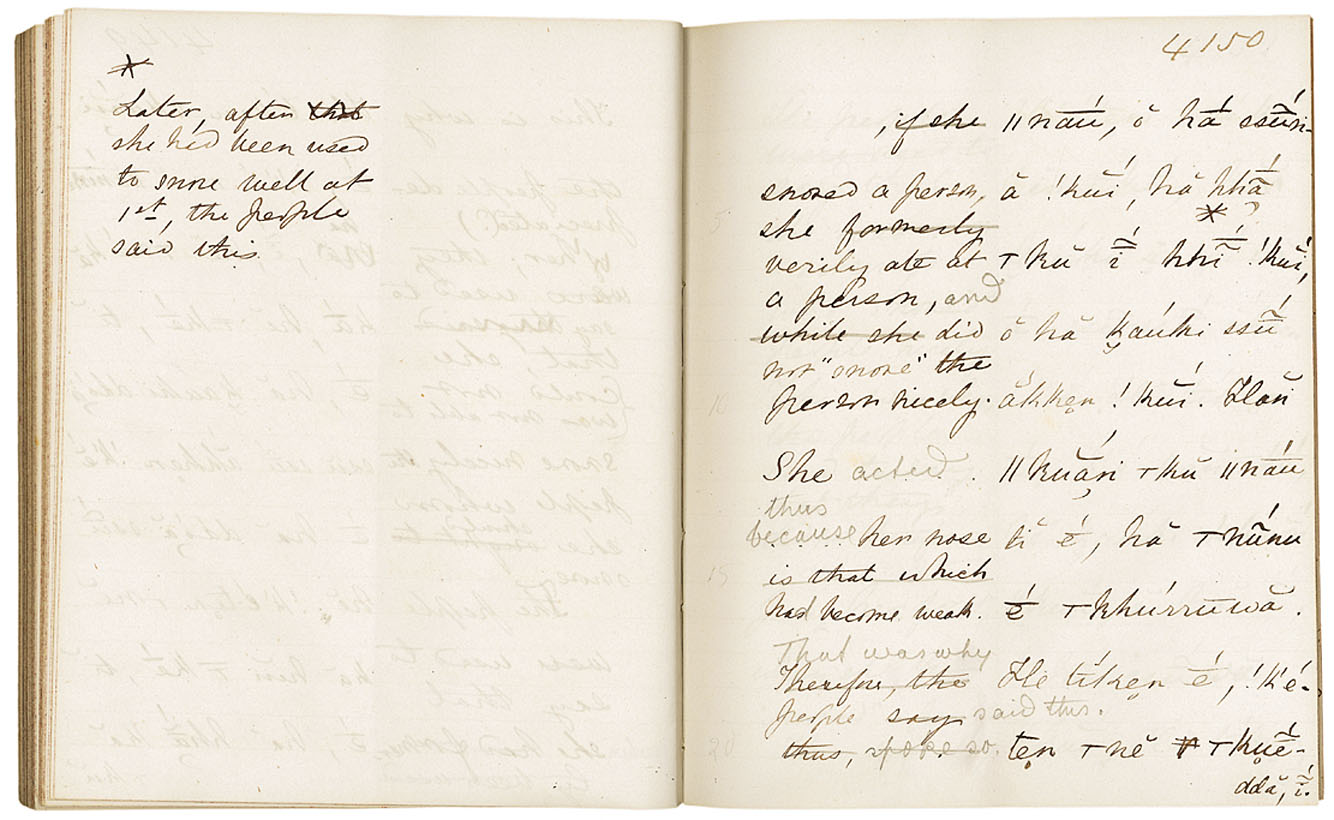 *
Later, after that
she had been used
to snore well at
1st, the people
said this.
4150
, if she ǁnā́ū, ŏ hā́ ssū̃́ń-
snored a person, ā !kúï, hă hhā̃́
she formerly *
verily ate at ⊤kŭ ḯ hhī̃́ !kúï,
a person, and
while she did ŏ hă k̮aúki ssū̃́
not "snore" the
person nicely. ăkkẹn !kúï. Hăń
She acted ǁkŭắṛi ⊤kŭ ǁnā́u
thus
because her nose tĭ é, hă ⊤nū̃́nu
is that which
had become weak. é ⊤khúrrŭwă.
That was why
Therefore, the Hé tíkẹn é, !k'é-
people say said this.
thus, spoke so. tẹn ⊤nĕ ⊤kuḗ-
ddă, ī̃.
5
10
15
20